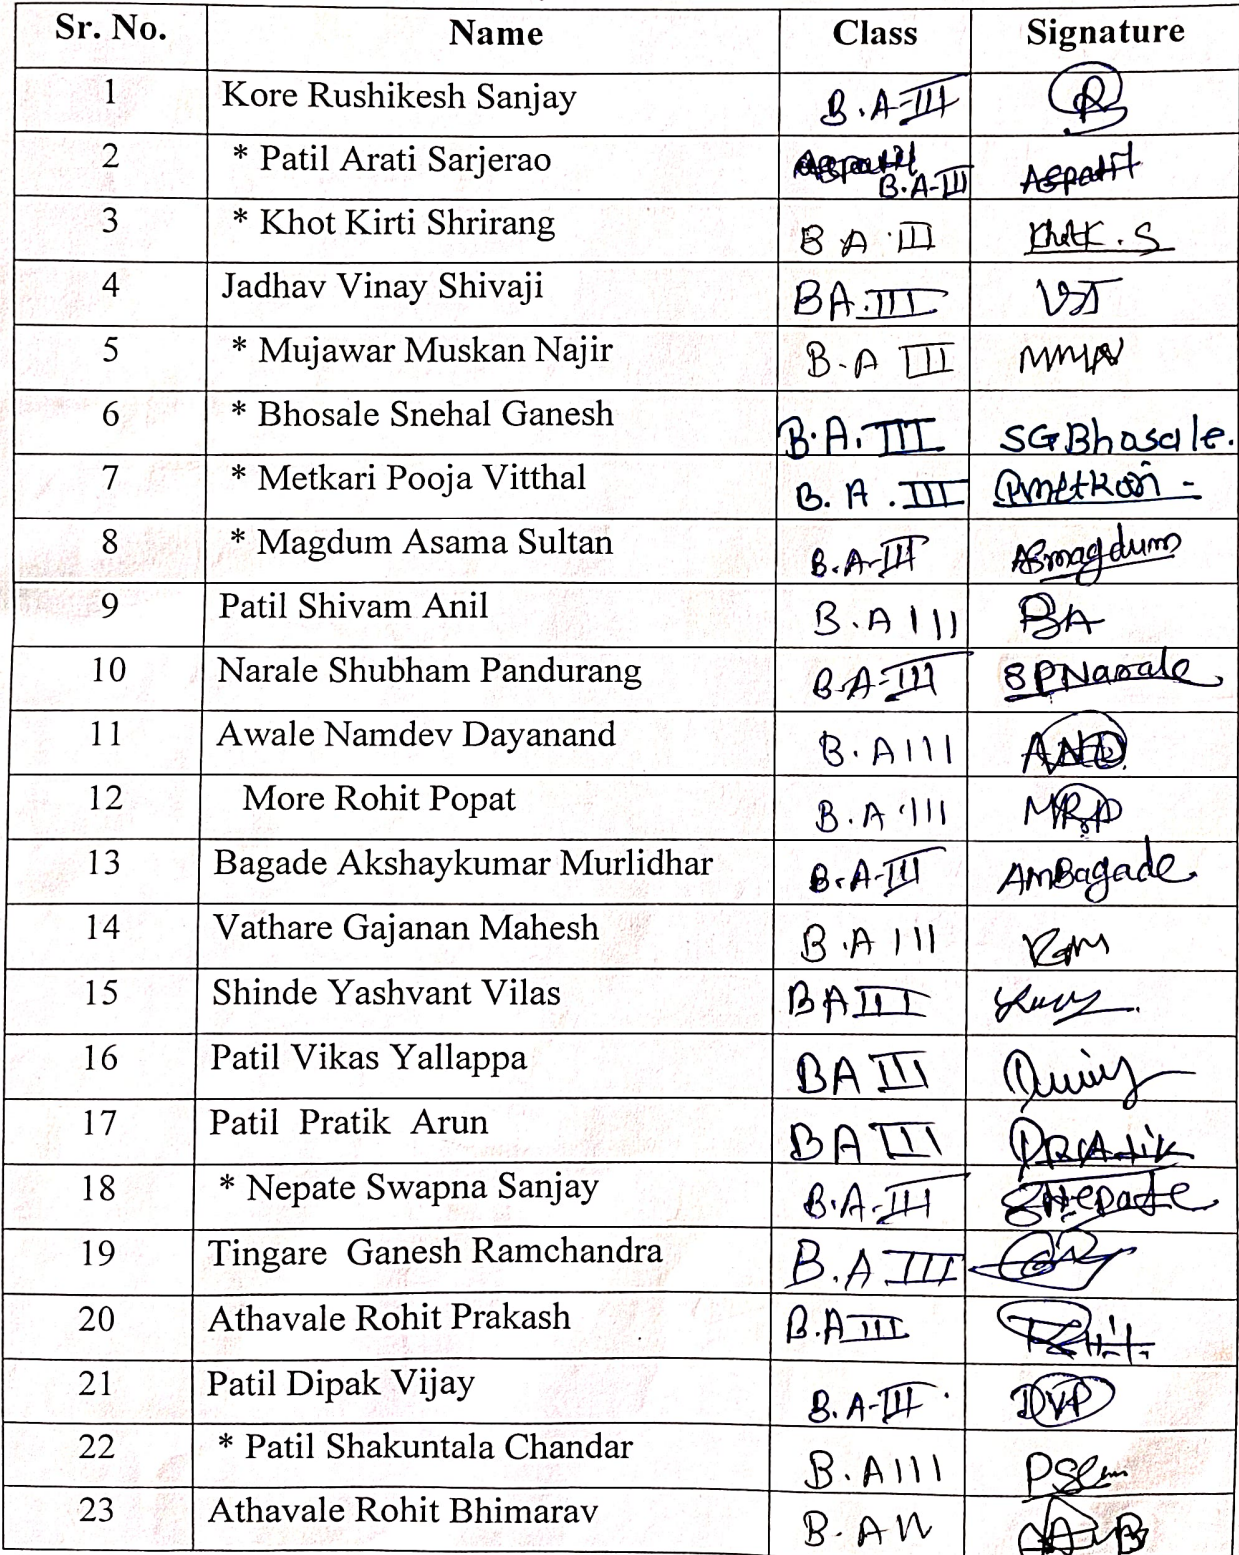 Sr. No. Name Class Signature
1 Kore Rushikesh Sanjay B.A-III
2 * Patil Arati Sarjerao Aspatil B.A-III Aspatil
3 * Khot Kirti Shrirang B A III Khot K. S
4 Jadhav Vinay Shivaji BA.III VJ
5 * Mujawar Muskan Najir B.A III MMN
6 * Bhosale Snehal Ganesh B.A.III SGBhosale.
7 * Metkari Pooja Vitthal B.A.III Pmetkari
8 * Magdum Asama Sultan B.A-III ASmagdum
9 Patil Shivam Anil B.A III
10 Narale Shubham Pandurang B.A-III SPNarale
11 Awale Namdev Dayanand B.A III AND
12 More Rohit Popat B.A III MRP
13 Bagade Akshaykumar Murlidhar B.A-III AmBagade
14 Vathare Gajanan Mahesh B.A III
15 Shinde Yashvant Vilas BA III
16 Patil Vikas Yallappa BA III
17 Patil Pratik Arun BA III PRAtik
18 * Nepate Swapna Sanjay B.A-III SNepate
19 Tingare Ganesh Ramchandra B.A III
20 Athavale Rohit Prakash B.A III
21 Patil Dipak Vijay B.A-III. DVP
22 * Patil Shakuntala Chandar B.A III
23 Athavale Rohit Bhimarav B.A